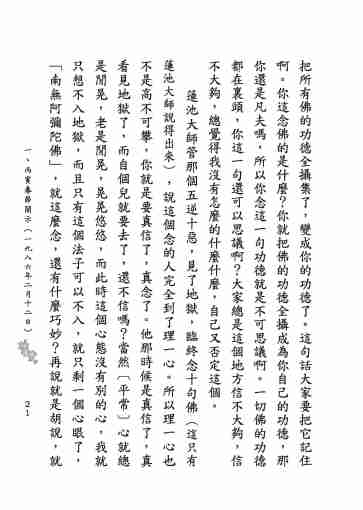 把所有佛的功德全攝集了，變成你的功德了。這句話大家要把它記住
啊。你這念佛的是什麼？你就把佛的功德全攝成為你自己的功德，那
你還是凡夫嗎，所以你念這一句功德就是不可思議啊。一切佛的功德
都在裏頭，你這一句還可以思議啊？大家總是這個地方信不大夠，信
不大夠，總覺得我沒有怎麼的什麼什麼，自己又否定這個。
蓮池大師答那個五逆十惡，見了地獄，臨終念十句佛（這只有
蓮池大師說得出來），說這個念的人完全到了理一心。所以理一心也
不是高不可攀，你就是要真信了，真念了。他那時候是真信了，真
看見地獄了，而自個兒就要去了，還不信嗎？當然（平常）心就總
是閒晃，老是閒晃，晃晃悠悠，而此時這個心態沒有別的心，我就
只想不入地獄，而且只有這個法子可以不入，就只剩一個心眼了，
「南無阿彌陀佛」，就這麼念，還有什麼巧妙？再說就是胡說，就
一、丙寅春節開示（一九八六年二月十二日）
21